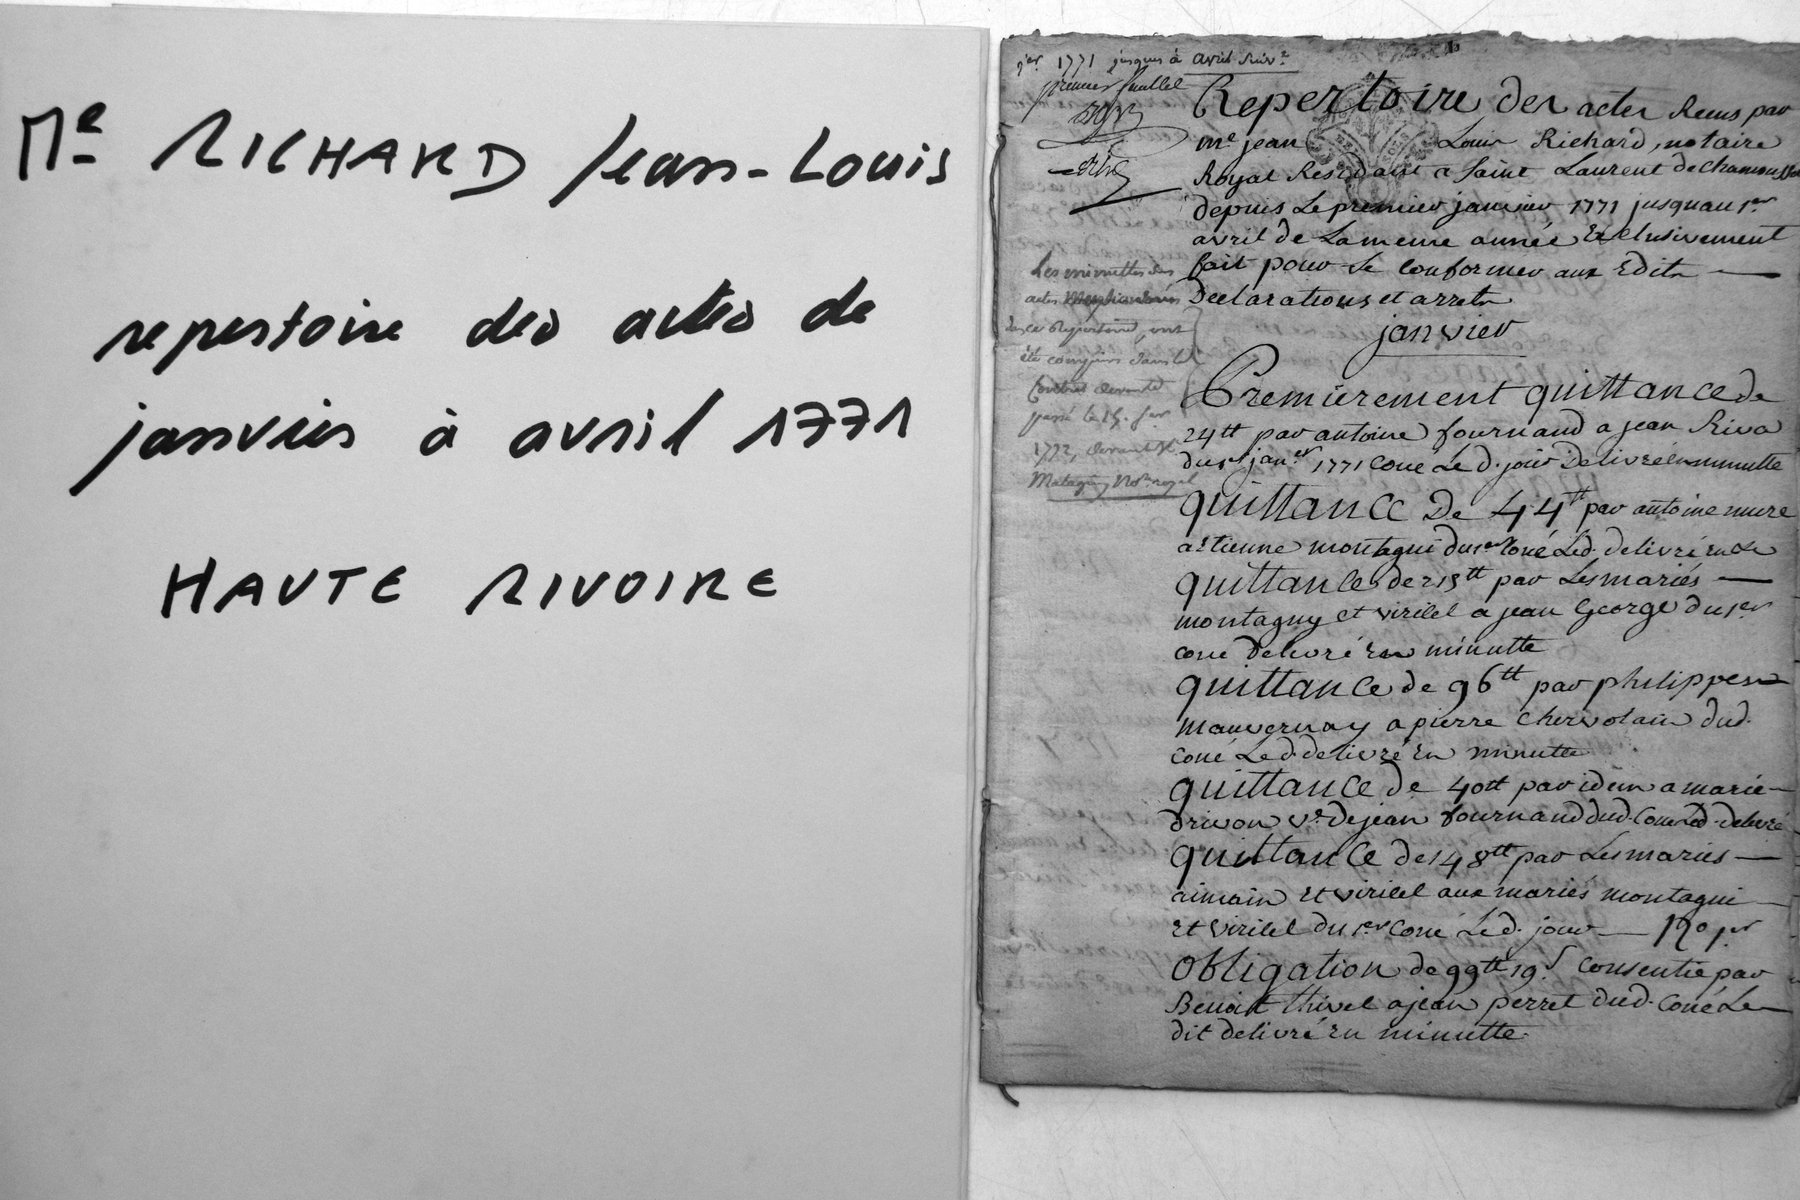 Me RICHARD Jean-Louis
repertoire des actes de
janvier à avril 1771
HAUTE RIVOIRE
1er 1771 jusques à avril
premier feuillet
Repertoire des actes Reçus par
me jean Louis Richard, notaire
Royal Residant a Saint Laurent de Chamousset
depuis Le premier janvier 1771 jusquau 1er
avril de La meme année Exclusivement
fait pour se conformer aux Edits
Declarations et arrets
janvier
Les minuttes des
actes
dans ce Repertoire, ont
été compris dans le
passé le 15.
1772, devant
Premierement quittance de
24tt par antoine fournand a jean Riva
du 1er janer 1771 Coné Le d. jour Delivré en minutte
quittance De 44tt par antoine mure
a etienne montagni du 1er Coné Led. delivré en
quittance de 215tt par Les mariés
montagny et viricel a jean George du 1er
coné delivré En minutte
quittance de 96tt par philippes
mauvernay a pierre Chervolain dud.
coné Led. delivré En minutte
quittance de 40tt par idem a marie
drivon ve. De jean fournand dud. Coné Led. delivré
quittance de 148tt par Les mariés
aimain Et viricel aux mariés montagni
Et viricel du 1er coné Led. jour
Obligation de 99tt 19s consentie par
Benoit thivel a jean perret dud. coné Le
dit delivré En minutte